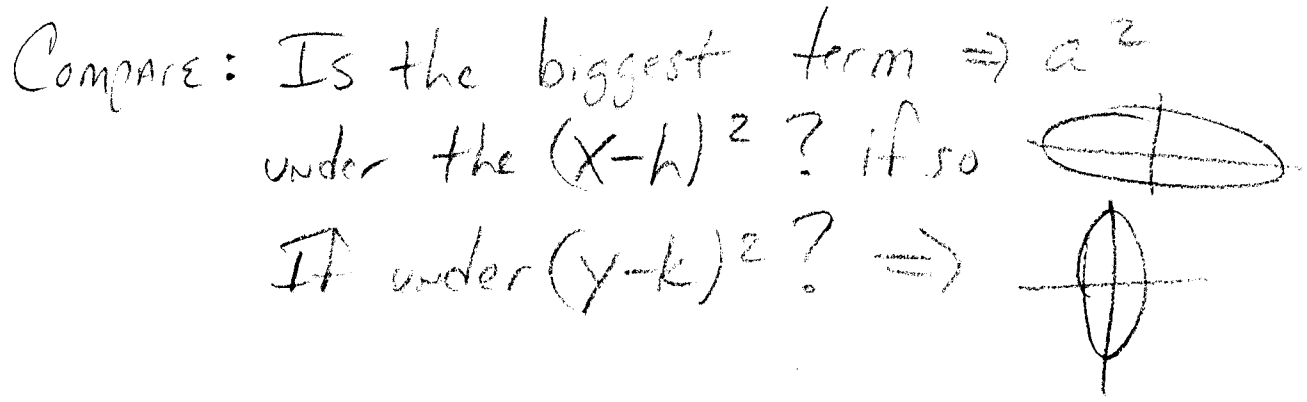 Compare: Is the biggest term ⇒ a²
under the (x-h)² ? if so
If under (y-k)² ? ⇒